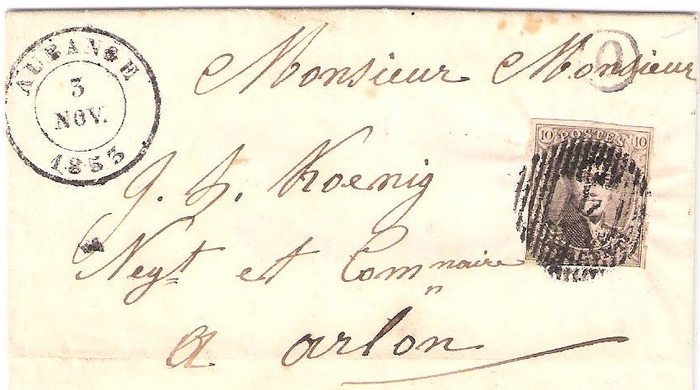 AUBANGE
3
NOV.
1853
Monsieur Monsieur
10 POSTES 10
J. H. Koenig
Negt et Commnaire
a arlon